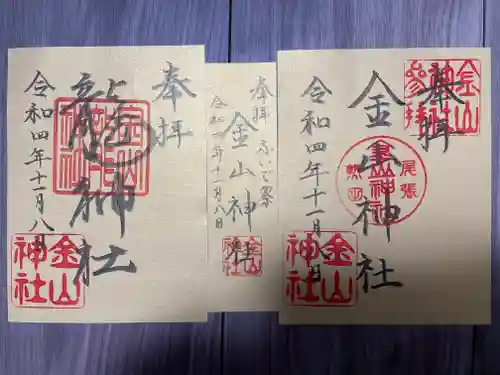 奉拝
神社
令和四年十一月八日
金山
神社
奉拝 ふいご祭
金山神社
令和四年十一月八日
金山
神社
奉拝
金山神社
令和四年十一月
金山
神社
参拝
尾張
熱田
金山
神社